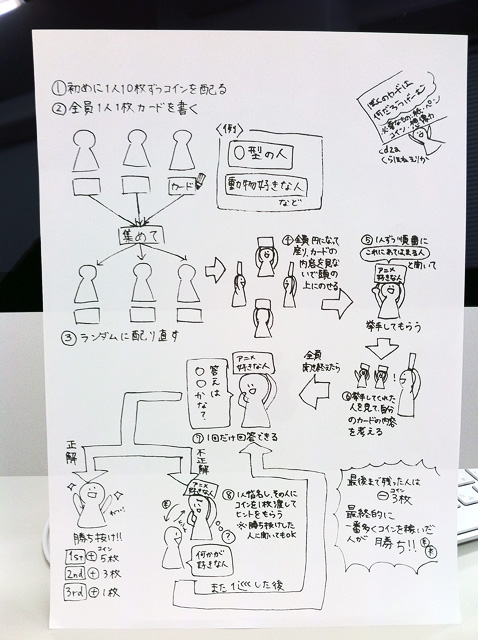 ① 初めに1人10枚ずつコインを配る
② 全員1人1枚 カードを書く
ぼくのカードは
何だろうゲーム
必要なもの:紙・ペン
コイン・想像力
〈例〉
○型の人
動物好きな人
など
カード
集めて
③ ランダムに配り直す
④ 全員円になって
座り、カードの
内容を見な
いで頭の
上にのせる
⑤ 1人ずつ順番に
これにあてはまる人
と聞いて
アニメ
好きな人
挙手してもらう
⑥ 挙手してくれた
人を見て、自分
のカードの内容
を考える
全員
アニメ
好きな人
答えは
○○かな?
⑦ 1回だけ回答できる
正解
不正解
勝ち抜け!!
コイン
1st ⊕ 5枚
2nd ⊕ 3枚
3rd ⊕ 1枚
アニメ
好きな人
?
何かが
好きな人
⑧ 1人指名し、その人に
コインを1枚渡して
ヒントをもらう
※勝ち抜けした
人に聞いてもOK
した後
最後まで残った人は
コイン
⊖3枚
最終的に
一番多くコインを稼いだ
人が 勝ち!!